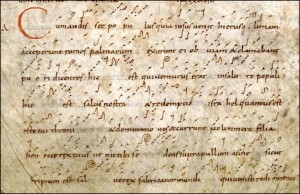 Cum audisset populus quia uenit hierosolimam
acceperunt ramos palmarum exierunt ei obuiam & clamabant
pueri dicentes hic est qui uenturus est salute populi
hic est salus nostra & redemptio israhel quantus est
iste cui throni & dominationes occurrunt noli timere filia
sion ecce rex tuus uenit tibi sedens super pullum asine sicut
scriptum est salue rex fabricator mundi qui uenisti redimere nos